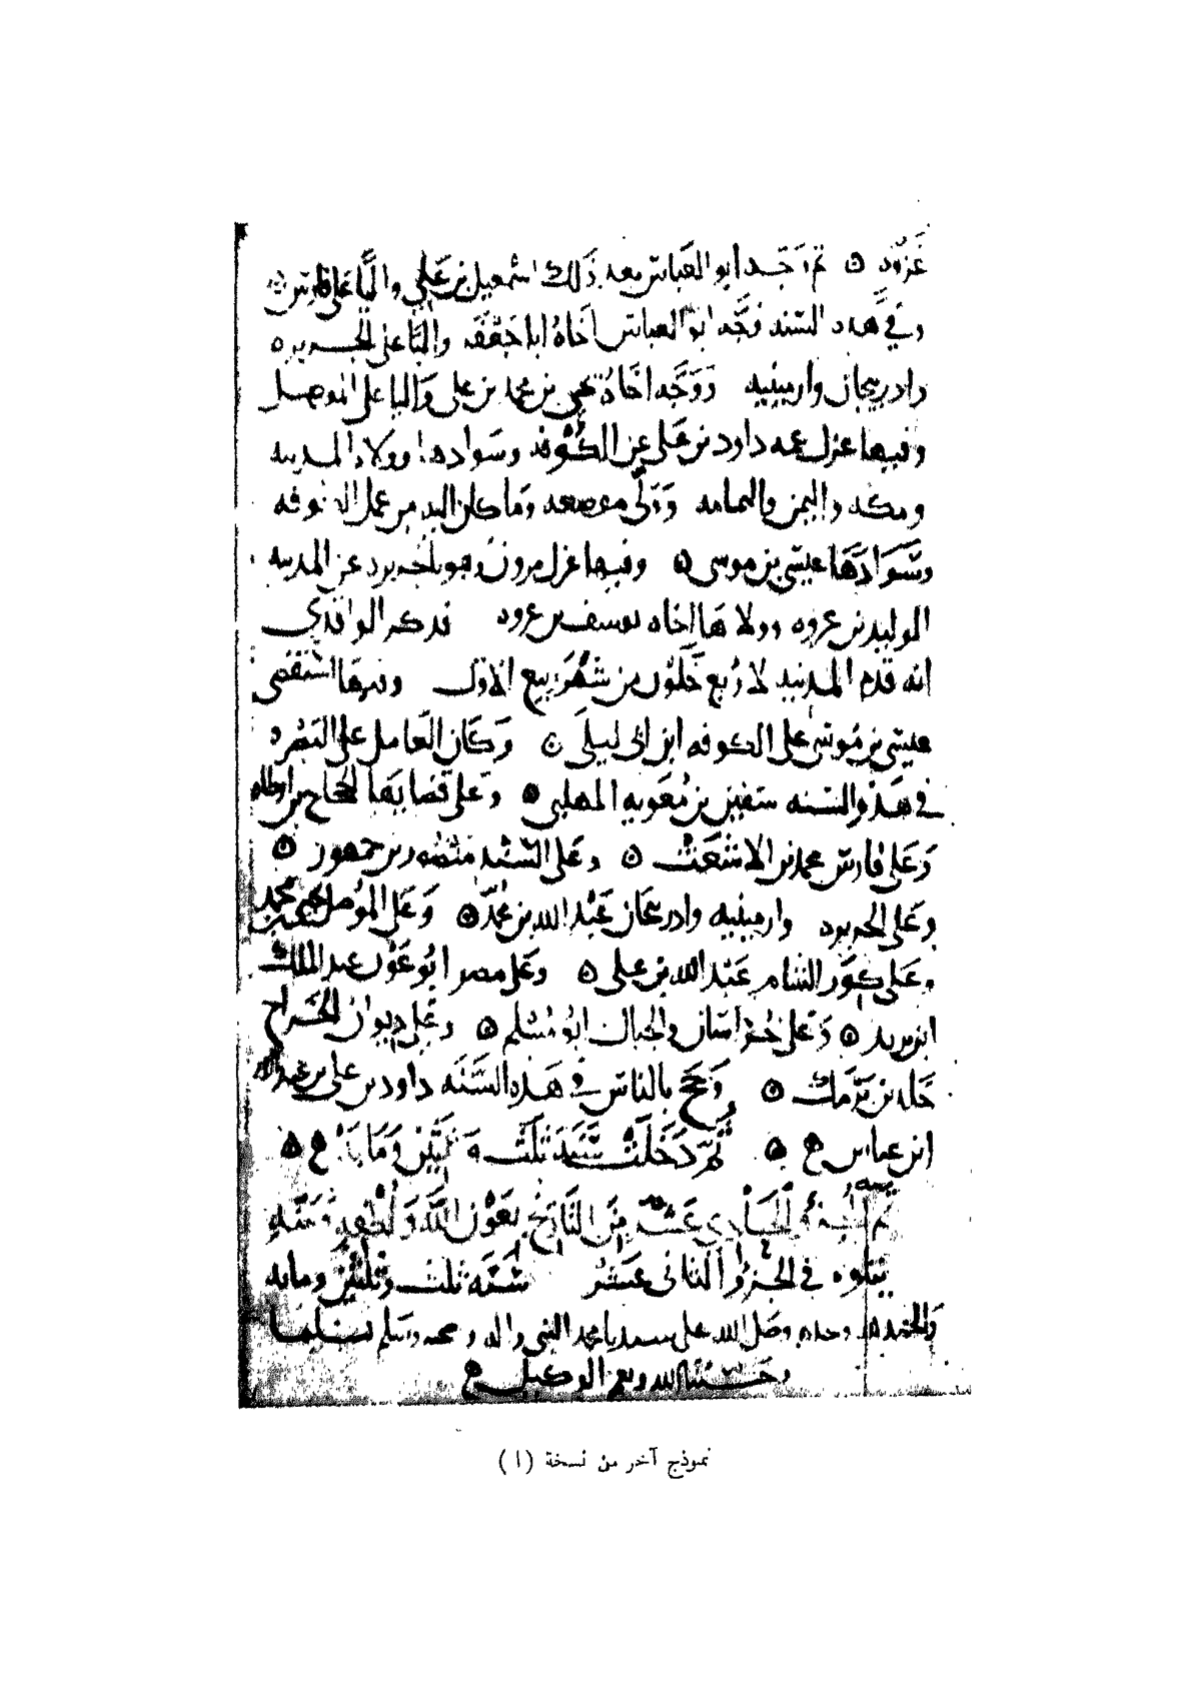 غزوه ۞ ثم وجه ابو العباس بعد ذلك اسمعيل بن علي واليا على فارس
وفي هذه السنه وجه ابو العباس اخاه ابا جعفر واليا على الجزيره
واذربيجان وارمينيه ووجه اخاه يحيى بن محمد بن علي واليا على الموصل
وفيها عزل عمه داود بن علي عن الكوفه وسوادها وولاه المدينه
ومكه واليمن واليمامه وولى موضعه وما كان اليه من عمل الكوفه
وسوادها عيسى بن موسى ۞ وفيها عزل مرون وهو بالجزيره عن المدينه
الوليد بن عروه وولاها اخاه يوسف بن عروه فذكر الواقدي
انه قدم المدينه لاربع خلون من شهر ربيع الاول وفيها استقضى
عيسى بن موسى على الكوفه ابن ابي ليلى ۞ وكان العامل على البصره
في هذه السنه سفين بن معويه المهلبي ۞ وعلى قضايها الحجاج بن ارطاه
وعلى فارس محمد بن الاشعث ۞ وعلى السند منصور بن جمهور ۞
وعلى الجزيره وارمينيه واذربيجان عبد الله بن محمد ۞ وعلى الموصل يحيى بن محمد
وعلى كور الشام عبد الله بن علي ۞ وعلى مصر ابو عون عبد الملك
ابن يزيد ۞ وعلى خراسان والجبال ابو مسلم ۞ وعلى ديوان الخراج
خلد بن برمك ۞ وحج بالناس في هذه السنه داود بن علي بن عبد الله
ابن عباس ۞ ثم دخلت سنه ثلث وثلثين ومايه ۞
تم الجزء الحادي عشر من التاريخ بعون الله ولطفه ومنه
يتلوه في الجزو الثاني عشر سنه ثلث وثلثين ومايه
والحمد لله وحده وصلى الله على سيدنا محمد النبي واله وصحبه وسلم تسليما
وحسبنا الله ونعم الوكيل
نموذج آخر من نسخة (ا)